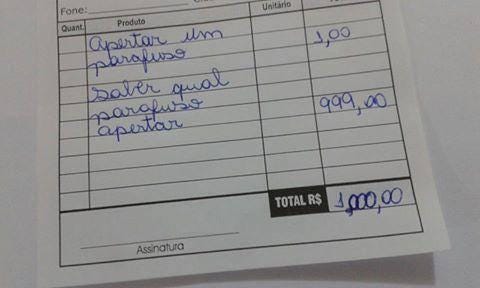 Fone:
Quant. Produto Unitário
Apertar um 1,00
parafuso
Saber qual
parafuso 999,00
apertar
TOTAL R$ 1,000,00
Assinatura